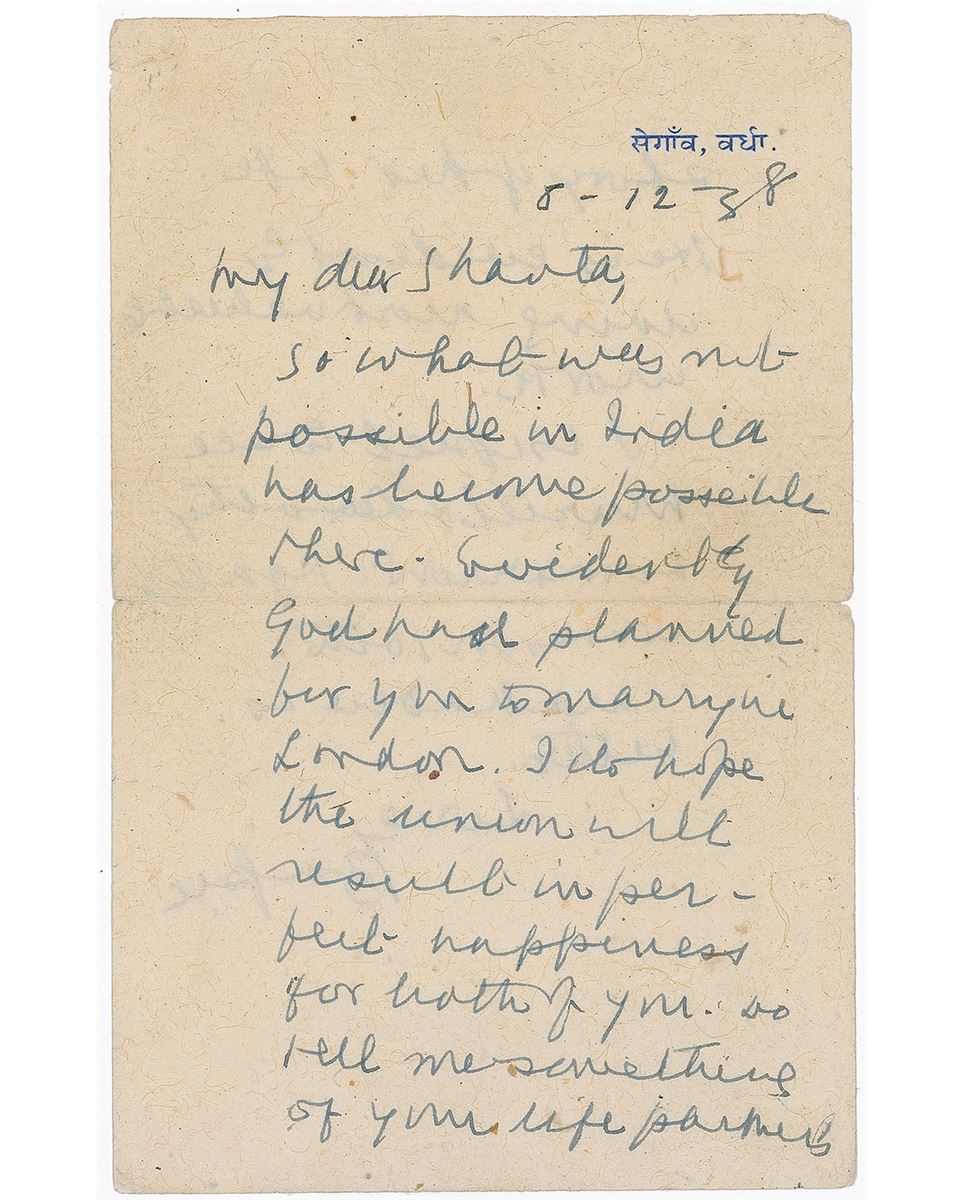 सेगाँव, वर्धा.
8-12-38
My dear Shanta,
So what was not
possible in India
has become possible
there. Evidently
God had planned
for you to marry in
London. I do hope
the union will
result in per-
fect happiness
for both of you. Do
tell me something
of your life partner's